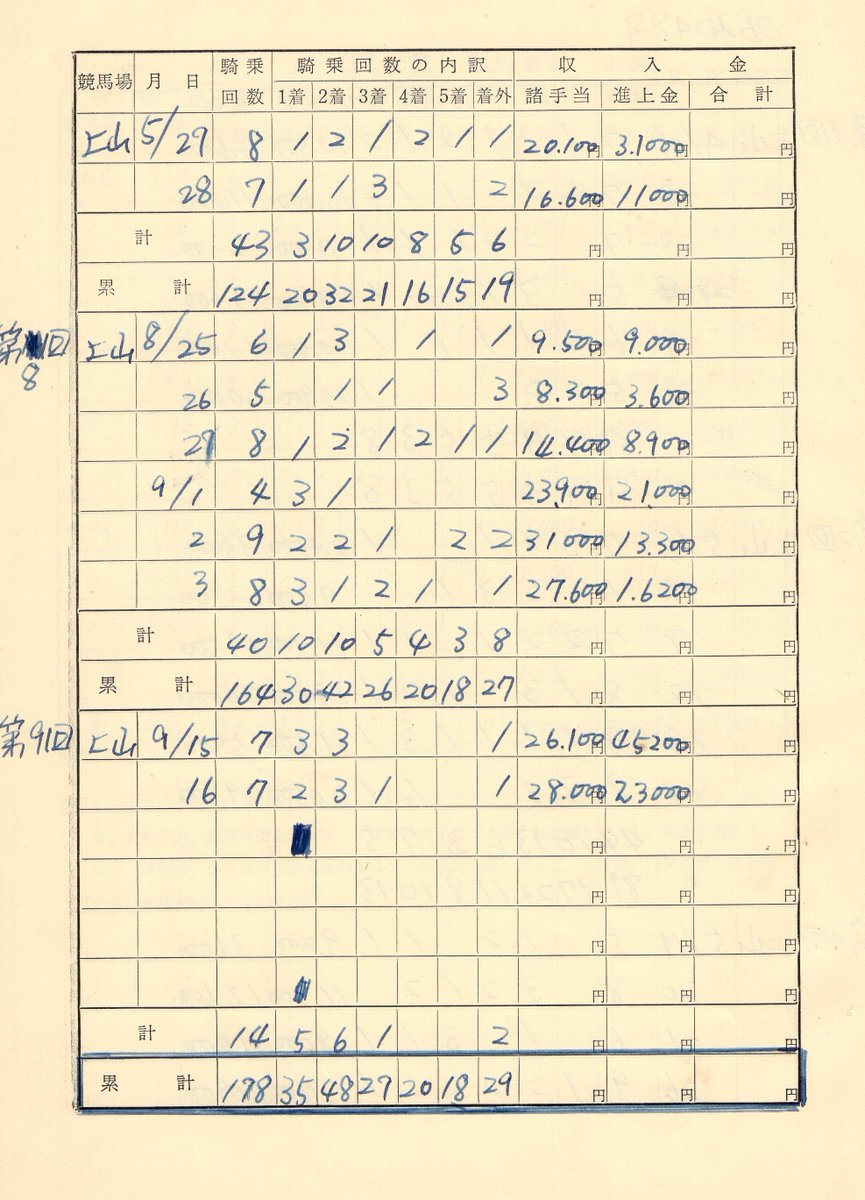 競馬場 月 日 騎乗回数 騎乗回数の内訳 収入金
1着 2着 3着 4着 5着 着外 諸手当 進上金 合計
上山 5/29 8 1 2 1 2 1 1 20.100円 3.1000円 円
28 7 1 1 3 2 16.600円 11000円 円
計 43 3 10 10 8 5 6 円 円 円
累計 124 20 32 21 16 15 19 円 円 円
第8回 上山 8/25 6 1 3 1 1 9.500円 9.000円 円
26 5 1 1 3 8.300円 3.600円 円
27 8 1 2 1 2 1 1 14.400円 8.900円 円
9/1 4 3 1 23.900円 21.000円 円
2 9 2 2 1 2 2 31000円 13.300円 円
3 8 3 1 2 1 1 27.600円 1.6200円 円
計 40 10 10 5 4 3 8 円 円 円
累計 164 30 42 26 20 18 27 円 円 円
第9回 上山 9/15 7 3 3 1 26.100円 45200円 円
16 7 2 3 1 1 28.000円 23000円 円
円 円 円
円 円 円
円 円 円
円 円 円
計 14 5 6 1 2 円 円 円
累計 178 35 48 27 20 18 29 円 円 円